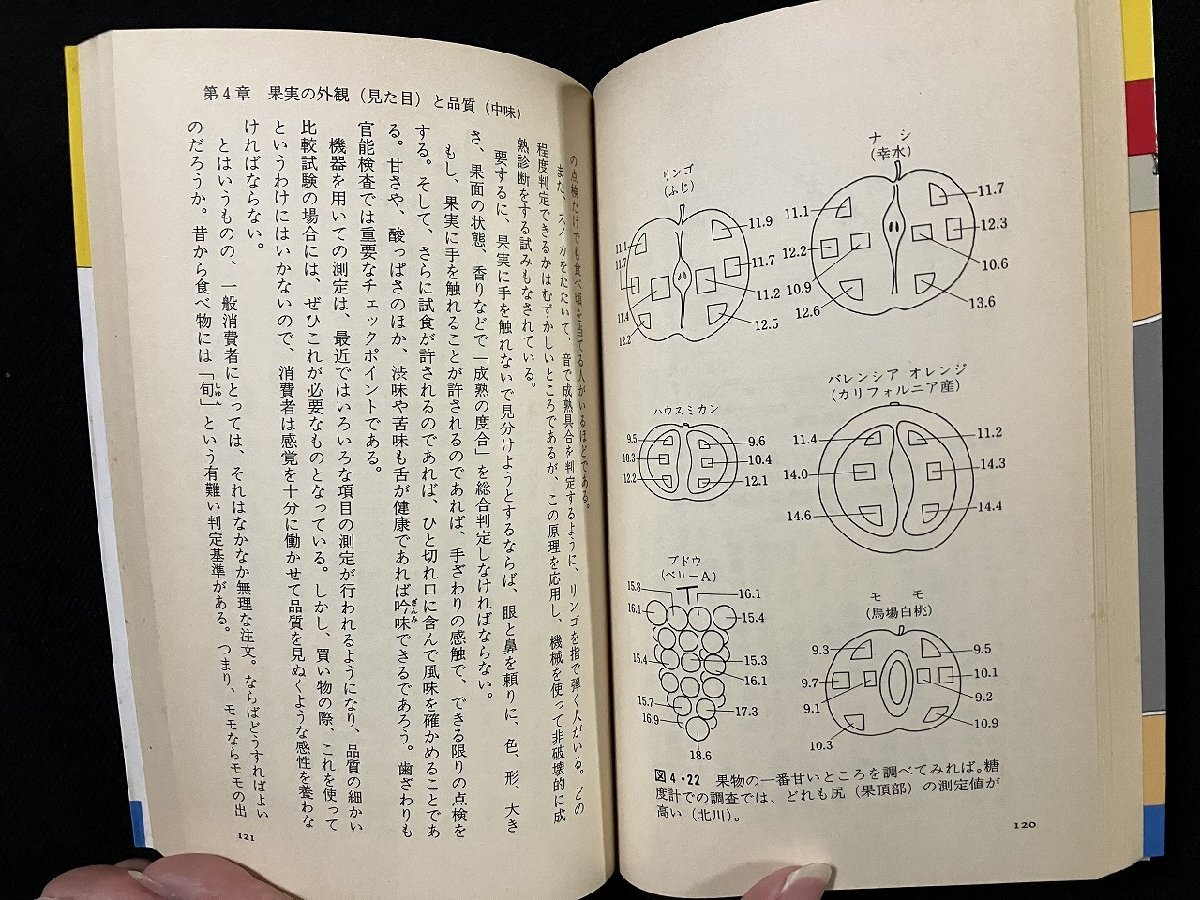 ナシ
(幸水)
11.1
12.2
10.9
12.6
11.7
12.3
10.6
13.6
リンゴ
(ふじ)
11.1
11.7
11.4
12.2
11.9
11.7
11.2
12.5
バレンシア オレンジ
(カリフォルニア産)
11.4
14.0
14.6
11.2
14.3
14.4
ハウスミカン
9.5
10.3
12.2
9.6
10.4
12.1
ブドウ
(ベリーA)
15.8
16.1
15.4
15.7
16.9
16.1
15.4
15.3
16.1
17.3
18.6
モモ
(馬場白桃)
9.3
9.7
9.1
10.3
9.5
10.1
9.2
10.9
図4・22 果物の一番甘いところを調べてみれば。糖
度計での調査では、どれも尻(果頂部)の測定値が
高い(北川)。
120
第4章 果実の外観(見た目)と品質(中味)
の点検だけでも食べ頃を当てる人がいるほどである。
また、スイカをたたいて、音で成熟具合を判定するように、リンゴを指で弾く人がいる。どの
程度判定できるかはむずかしいところであるが、この原理を応用し、機械を使って非破壊的に成
熟診断をする試みもなされている。
要するに、果実に手を触れないで見分けようとするならば、眼と鼻を頼りに、色、形、大き
さ、果面の状態、香りなどで「成熟の度合」を総合判定しなければならない。
もし、果実に手を触れることが許されるのであれば、手ざわりの感触で、できる限りの点検を
する。そして、さらに試食が許されるのであれば、ひと切れ口に含んで風味を確かめることであ
る。甘さや、酸っぱさのほか、渋味や苦味も舌が健康であれば吟味できるであろう。歯ざわりも
官能検査では重要なチェックポイントである。
機器を用いての測定は、最近ではいろいろな項目の測定が行われるようになり、品質の細かい
比較試験の場合には、ぜひこれが必要なものとなっている。しかし、買い物の際、これを使って
というわけにはいかないので、消費者は感覚を十分に働かせて品質を見ぬくような感性を養わな
ければならない。
とはいうものの、一般消費者にとっては、それはなかなか無理な注文。ならばどうすればよい
のだろうか。昔から食べ物には「旬」という有難い判定基準がある。つまり、モモならモモの出
121